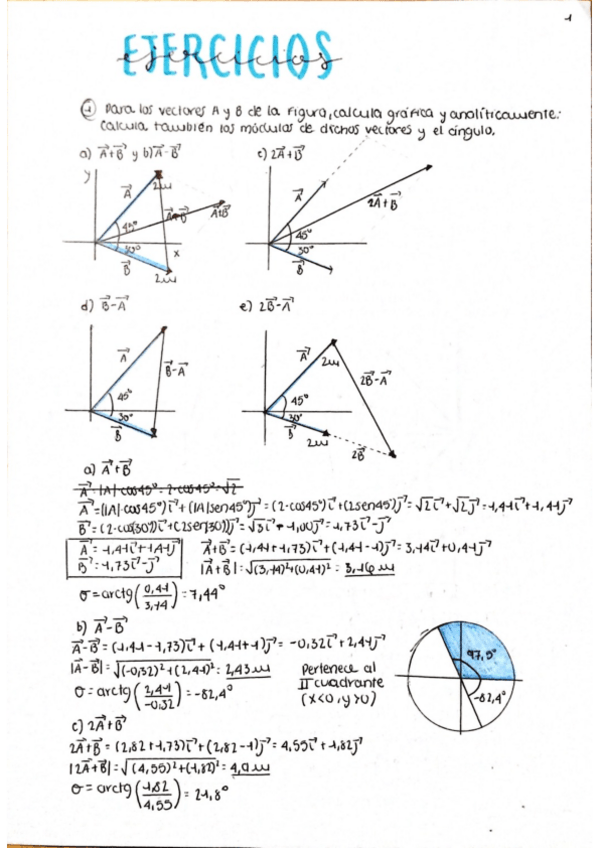 1
EJERCICIOS
ejercicios
① Para los vectores A y B de la figura, calcula gráfica y analíticamente:
Calcula también los módulos de dichos vectores y el ángulo.
a) A⃗+B⃗ y b) A⃗-B⃗ c) 2A⃗+B⃗
y A⃗ 2u A⃗+B⃗ A⃗+B⃗ 45° 30° x B⃗ 2u
A⃗ 2A⃗+B⃗ 45° 30° B⃗
d) B⃗-A⃗ e) 2B⃗-A⃗
A⃗ B⃗-A⃗ 45° 30° B⃗
A⃗ 2u 2B⃗-A⃗ 45° 30° B⃗ 2u 2B⃗
a) A⃗+B⃗
A⃗ = |A|·cos45° = 2·cos45° = √2
A⃗ = (|A|·cos45°)i⃗ + (|A|sen45°)j⃗ = (2·cos45°)i⃗ + (2sen45°)j⃗ = √2i⃗ + √2j⃗ = 1,41i⃗ + 1,41j⃗
B⃗ = (2·cos(30°))i⃗ + (2sen(30))j⃗ = √3i⃗ - 1,00j⃗ = 1,73i⃗ - j⃗
A⃗ = 1,41i⃗ + 1,41j⃗ A⃗+B⃗ = (1,41+1,73)i⃗ + (1,41-1)j⃗ = 3,14i⃗ + 0,41j⃗
B⃗ = 1,73i⃗ - j⃗ |A⃗+B⃗| = √(3,14)²+(0,41)² = 3,16 u
σ = arctg(0,41/3,14) = 7,44°
b) A⃗-B⃗
A⃗-B⃗ = (1,41-1,73)i⃗ + (1,41+1)j⃗ = -0,32i⃗ + 2,41j⃗
|A⃗-B⃗| = √(-0,32)²+(2,41)² = 2,43 u Pertenece al
σ = arctg(2,41/-0,32) = -82,4° II cuadrante
(x<0, y>0)
97,5°
-82,4°
c) 2A⃗+B⃗
2A⃗+B⃗ = (2,82+1,73)i⃗ + (2,82-1)j⃗ = 4,55i⃗ + 1,82j⃗
|2A⃗+B⃗| = √(4,55)²+(1,82)² = 4,9 u
σ = arctg(1,82/4,55) = 21,8°